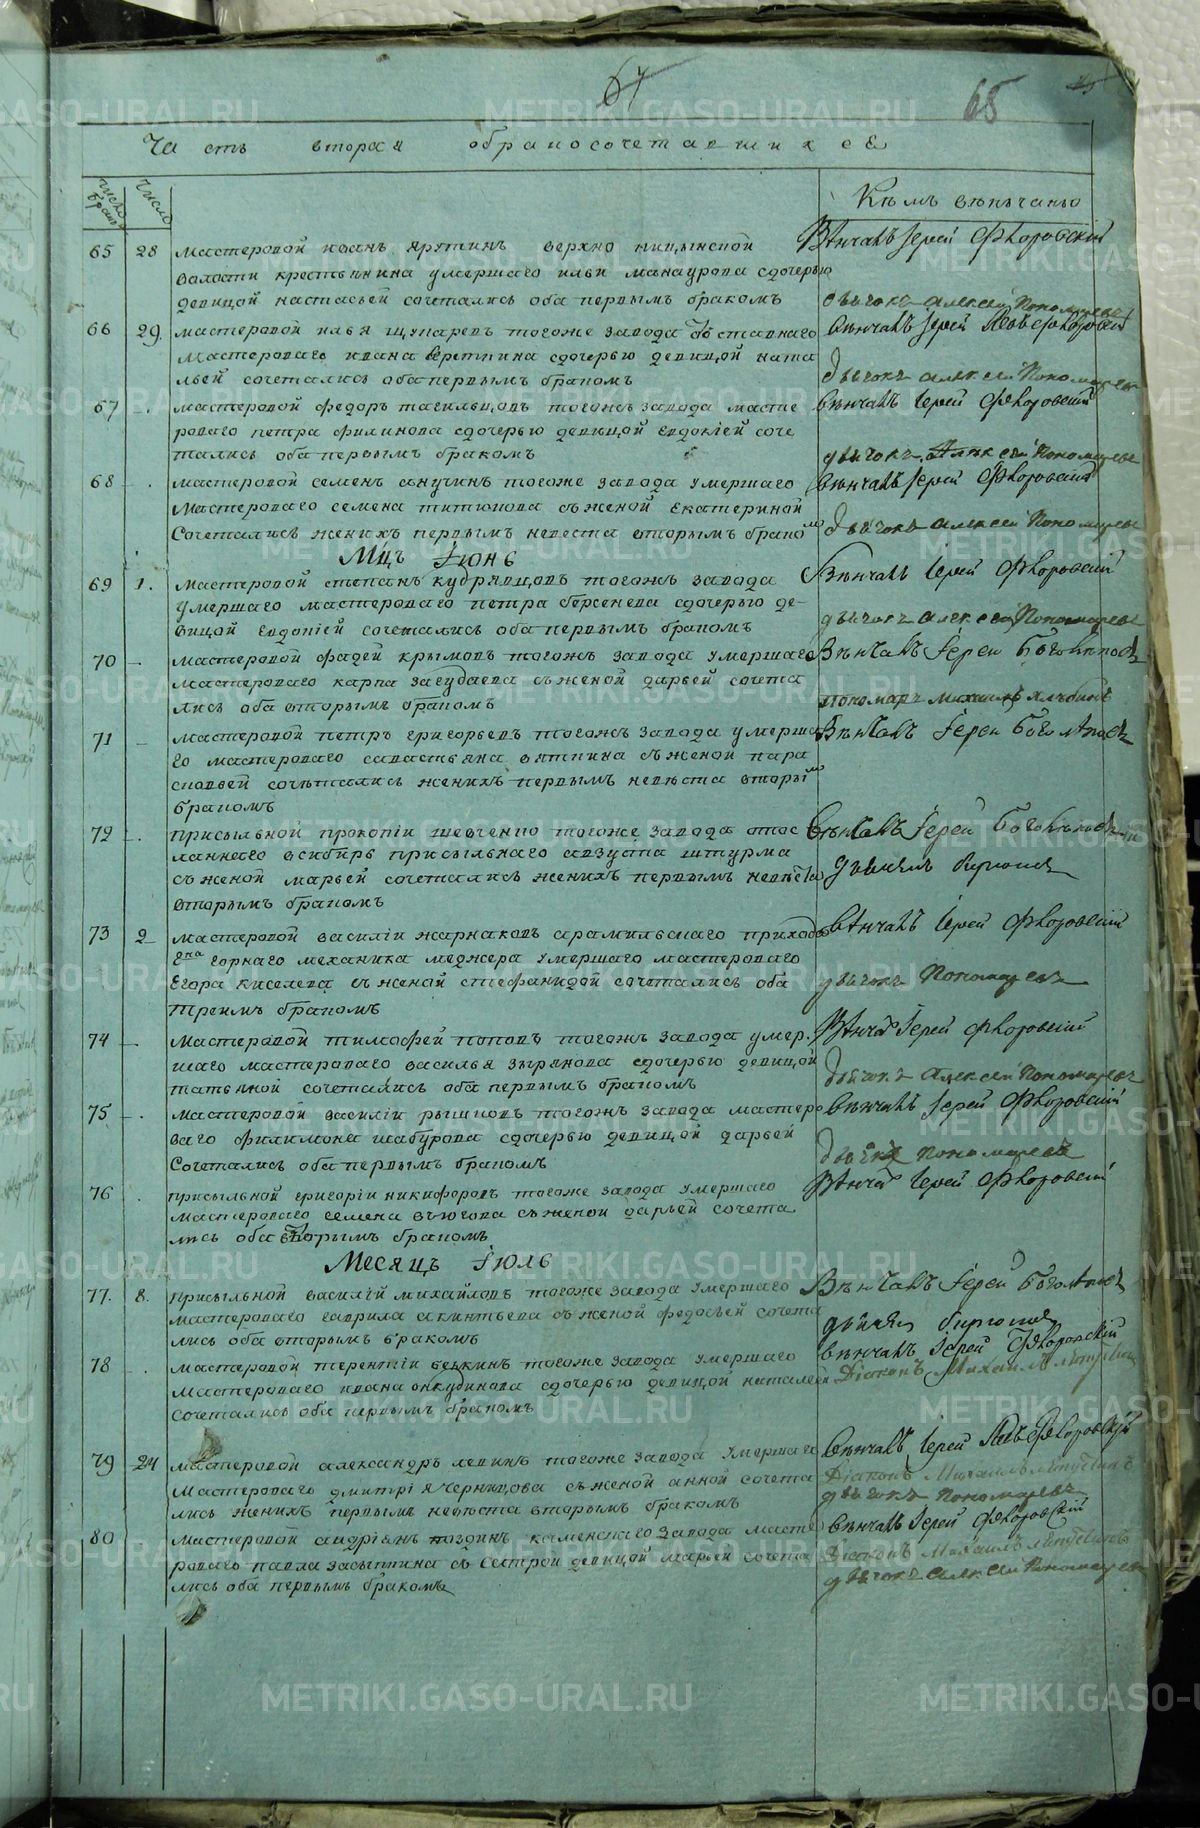 64
65
Часть вторая о бракосочетавшихся
число браковъ
число
Кѣмъ вѣнчаны
65 28 мастеровой иванъ яруткинъ верхно ницынской
волости крестьянина умершаго ильи манаурова сдочерью
девицой настасьей сочетались оба первымъ бракомъ
Вѣнчалъ Іерей Флоровскій
дьячокъ Алексей Пономаревъ
66 29. мастеровой илья щупаревъ тогоже завода отставнаго
мастероваго ивана веретнина сдочерью девицой ната
льей сочетались оба первымъ бракомъ
вѣнчалъ Іерей Яковъ Флоровскій
дьячокъ алексей Пономаревъ
67 -. мастеровой федоръ тагильцовъ тогожъ завода масте
роваго петра филинова сдочерью девицой Евдокіей соче
тались оба первымъ бракомъ
вѣнчалъ Іерей Флоровскій
дьячокъ Алексей Пономаревъ
68 -. мастеровой семенъ тогоже завода умершаго
мастероваго семена титюнова съженой Екатериной
Сочетались женихъ первымъ невеста вторымъ бракомъ
вѣнчалъ Іерей Флоровскій
дьячокъ алексей Пономаревъ
Мцъ Іюнь
69 1. мастеровой степанъ кудрявцовъ тогожъ завода
умершаго мастероваго петра берсенева сдочерью де-
вицой Евдокіей сочетались оба первымъ бракомъ
Вѣнчалъ Іерей Флоровскій
дьячокъ алексей Пономаревъ
70 - мастеровой фадей крымовъ тогожъ завода умершаго
мастероваго карпа загудаева съженой дарьей сочета
лись оба вторымъ бракомъ
Вѣнчалъ Іерей
пономарь михаилъ
71 - мастеровой петръ григорьевъ тогожъ завода умерша
го мастероваго савастьяна вяткина съженой пара
сковьей сочѣтались женихъ первымъ невѣста вторымъ
бракомъ
Вѣнчалъ Іерей
72 -. присыльной прокопіи шевченко тогоже завода отос
ланнаго всибирь присыльнаго августа штурма
съженой марьей сочетались женихъ первымъ невѣста
вторымъ бракомъ
Вѣнчалъ Іерей
73 2 мастеровой василіи жарнаковъ арамильскаго прихода
горнаго механика меджера умершаго мастероваго
Егора киселева съженой стефанидой сочетались оба
третимъ бракомъ
вѣнчалъ Іерей Флоровскій
дьячокъ Пономаревъ
74 -. мастеровой тимофей поповъ тогожъ завода умер.
шаго мастероваго василья зырянова сдочерью девицой
татьяной сочетались оба первымъ бракомъ
Вѣнчалъ Іерей Флоровскій
дьячокъ Алексей Пономаревъ
75 -. мастеровой василіи рышковъ тогожъ завода мастеро
ваго филимона шабурова сдочерью девицой дарьей
Сочетались оба первымъ бракомъ
вѣнчалъ Іерей Флоровскій
дьячокъ Пономаревъ
76 . присыльной григоріи никифоровъ тогоже завода умершаго
мастероваго семена вьюгова съженой дарьей сочета
лись оба вторымъ бракомъ
Вѣнчалъ Іерей Флоровскій
Месяцъ Іюль
77. 8. присыльной василій михайловъ тогоже завода умершаго
мастероваго гаврила акинтьева съженой федосьей сочета
лись оба вторымъ бракомъ
Вѣнчалъ Іерей
78 . мастеровой терентіи векшинъ тогоже завода умершаго
мастероваго ивана онкудинова сдочерью девицой наталей
сочетались оба первымъ бракомъ
вѣнчалъ Іерей Флоровскій
Діаконъ Михаилъ
79 24 мастеровой александръ левинъ тогоже завода умершаго
мастероваго дмитрія черницова съженой анной сочета
лись женихъ первымъ невѣста вторымъ бракомъ
вѣнчалъ Іерей Яковъ Флоровскій
Діаконъ Михаилъ
дьячокъ Пономаревъ
80 мастеровой андріянъ поздинъ каменскаго завода масте
роваго павла засыпкина съ Сестрой девицой марьей сочета
лись оба первымъ бракомъ
вѣнчалъ Іерей Флоровскій
Діаконъ Михаилъ
дьячокъ Алексей Пономаревъ
METRIKI.GASO-URAL.RU